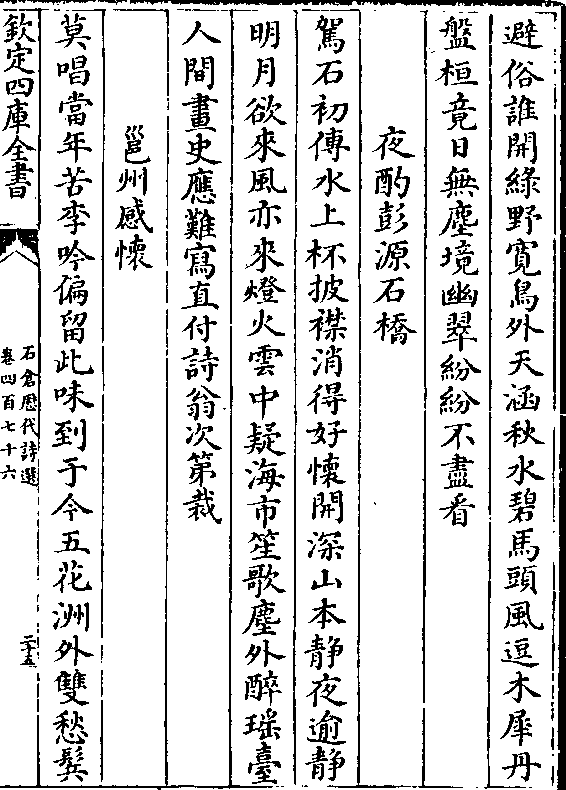 避俗誰開綠野寬鳥外天涵秋水碧馬頭風逗木犀丹
盤桓竟日無塵境幽翠紛紛不盡看
夜酌彭源石橋
駕石初傳水上杯披襟消得好懷開深山本靜夜逾靜
明月欲來風亦來燈火雲中疑海市笙歌塵外醉瑤臺
人間畫史應難寫直付詩翁次第裁
邕州感懷
莫唱當年苦李吟偏留此味到于今五花洲外雙愁鬂
欽定四庫全書
石倉歷代詩選
卷四百七十六
二十五